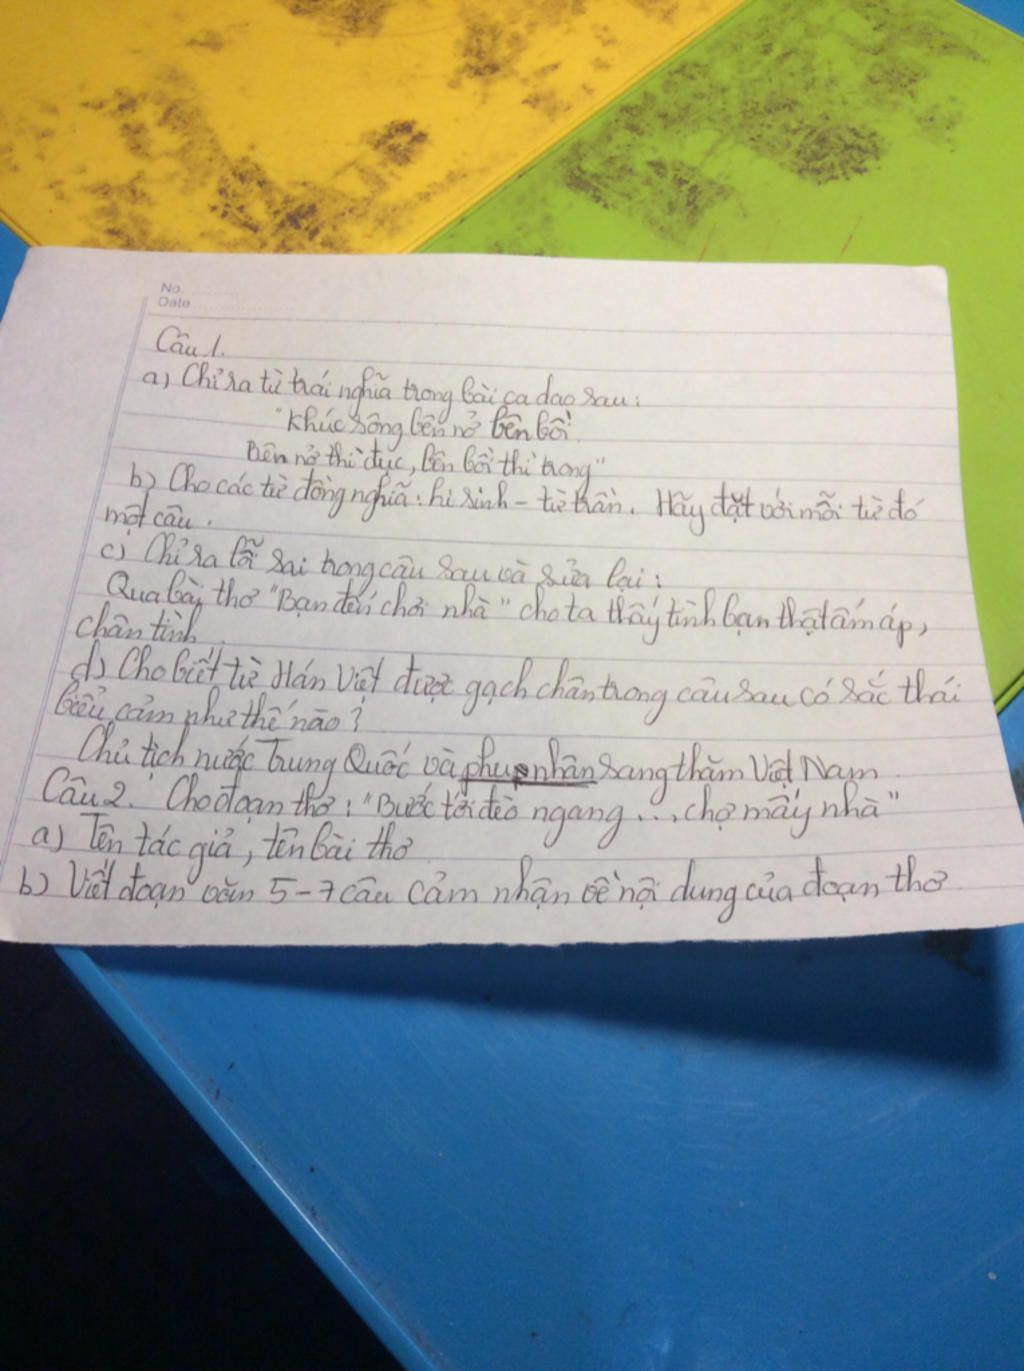 No.
Date
Câu 1.
a) Chỉ ra từ trái nghĩa trong bài ca dao sau:
"Khúc sông bên nở bên bồi
Bên nở thì đục, bên bồi thì trong"
b) Cho các từ đồng nghĩa: hi sinh - từ trần. Hãy đặt với mỗi từ đó
một câu.
c) Chỉ ra lỗi sai trong câu sau và sửa lại:
Qua bài thơ "Bạn đến chơi nhà" cho ta thấy tình bạn thật ấm áp,
chân tình.
d) Cho biết từ Hán Việt được gạch chân trong câu sau có sắc thái
biểu cảm như thế nào?
Chủ tịch nước Trung Quốc và phu nhân sang thăm Việt Nam
Câu 2. Cho đoạn thơ: "Bước tới đèo ngang ... chợ mấy nhà"
a) Tên tác giả, tên bài thơ
b) Viết đoạn văn 5-7 câu cảm nhận về nội dung của đoạn thơ